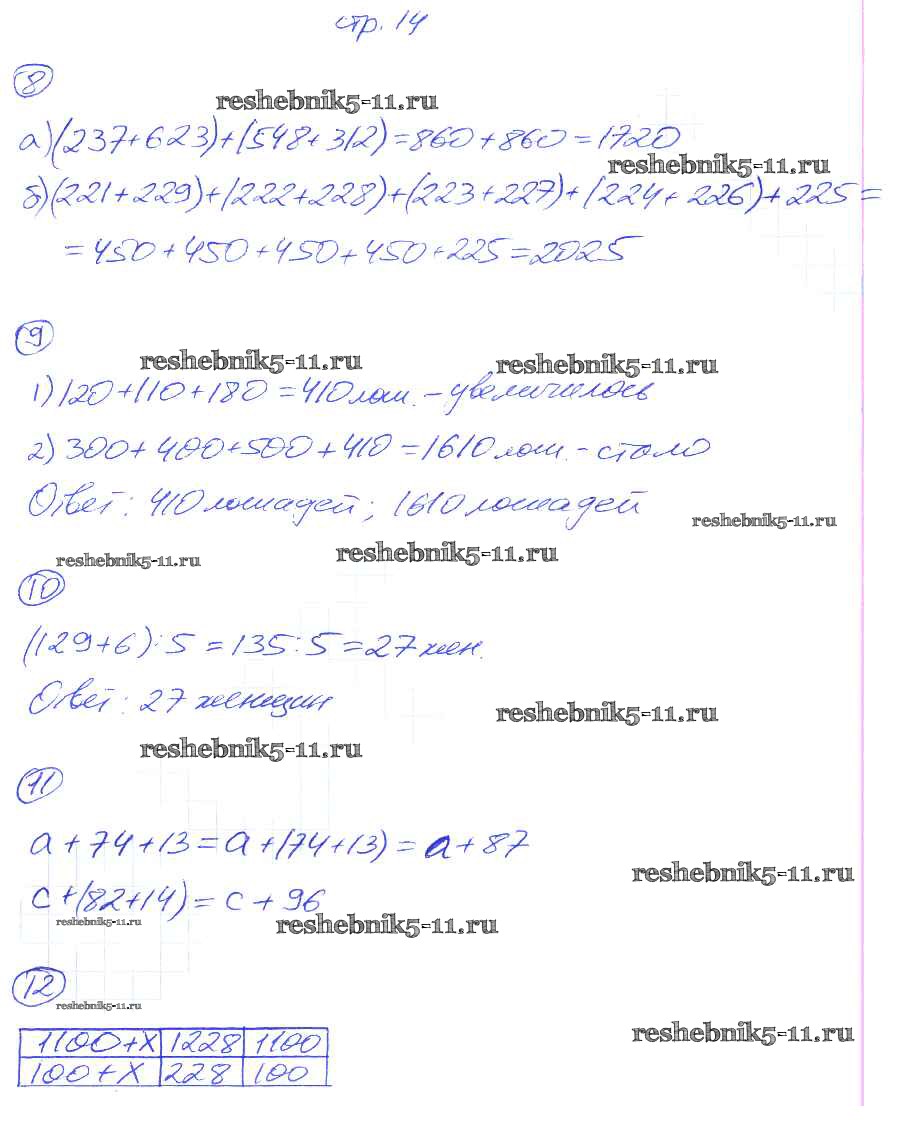 стр. 14
8
reshebnik5-11.ru
а)(237+623)+(548+312)=860+860=1720
reshebnik5-11.ru
б)(221+229)+(222+228)+(223+227)+(224+226)+225=
=450+450+450+450+225=2025
9
reshebnik5-11.ru reshebnik5-11.ru
1)120+110+180=410лош.-увеличилось
2)300+400+500+410=1610лош.-стало
Ответ: 410лошадей; 1610лошадей
reshebnik5-11.ru
reshebnik5-11.ru reshebnik5-11.ru
10
(129+6):5=135:5=27жен.
Ответ: 27женщин
reshebnik5-11.ru
reshebnik5-11.ru
11
а+74+13=а+(74+13)=а+87
reshebnik5-11.ru
с+(82+14)=с+96
reshebnik5-11.ru reshebnik5-11.ru
12
reshebnik5-11.ru
reshebnik5-11.ru
1100+х 1228 1100
100+х 228 100